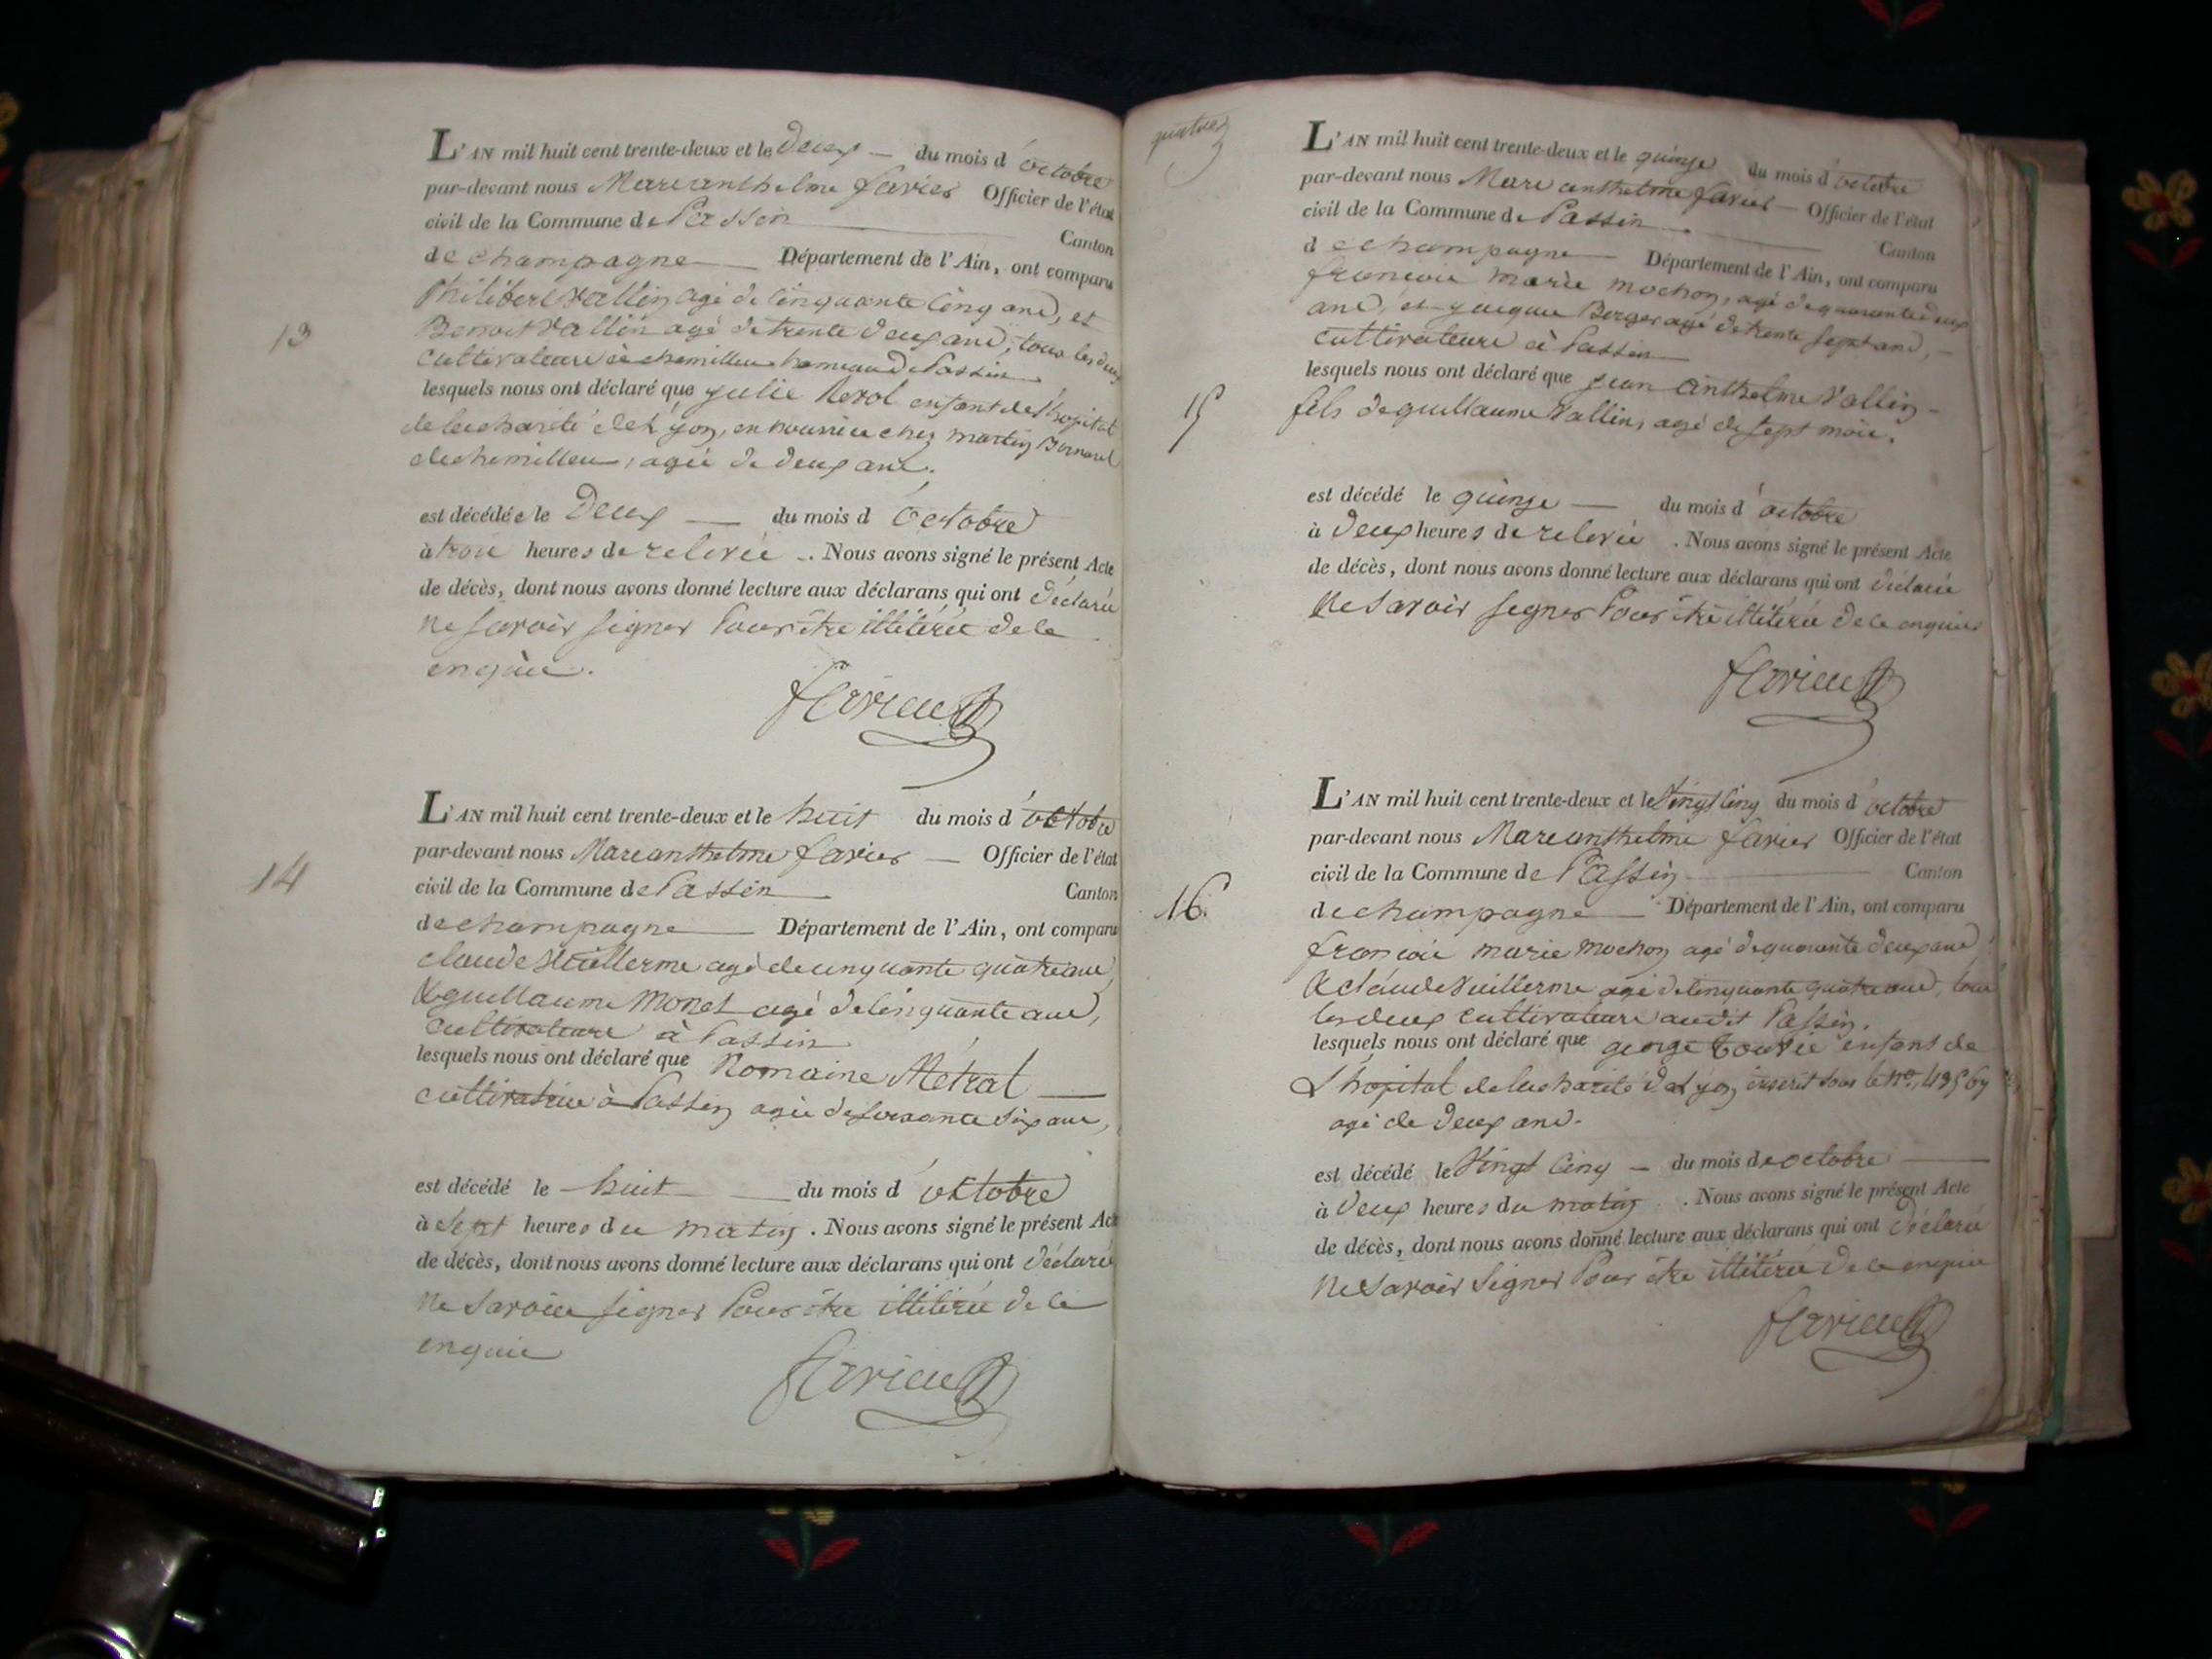 13
L'AN mil huit cent trente-deux et le Deux — du mois d'octobre
par-devant nous Mare anthelme favier Officier de l'état
civil de la Commune de Passin Canton
de champagne — Département de l'Ain, ont comparu
Philibert Vallin agé de cinquante cinq ans, et
Benoit Vallin agé de trente deux ans, tous les deux
cultivateurs à chemillieu hameau de Passin
lesquels nous ont déclaré que julie enfant de l'hopital
de la charité de Lyon, en nourrice chez martin
de chemillieu, agée de deux ans.
est décédée le Deux — du mois d'octobre
à trois heures de relevée . Nous avons signé le présent Acte
de décès, dont nous avons donné lecture aux déclarans qui ont déclaré
ne savoir signer Pour être illitéré de ce
enquis.
favier
14
L'AN mil huit cent trente-deux et le huit du mois d'octobre
par-devant nous Mare anthelme favier — Officier de l'état
civil de la Commune de Passin Canton
de champagne — Département de l'Ain, ont comparu
claude Vuillerme agé de cinquante quatre ans,
& guillaume Monet agé de cinquante ans,
cultivateurs à Passin
lesquels nous ont déclaré que Romaine Métral —
cultivatrice à Passin agée de soixante six ans,
est décédé le huit — du mois d'octobre
à sept heures du matin . Nous avons signé le présent Acte
de décès, dont nous avons donné lecture aux déclarans qui ont déclaré
ne savoir signer Pour être illitéré de ce
enquis
favier
15
L'AN mil huit cent trente-deux et le quinze du mois d'octobre
par-devant nous Mare anthelme favier — Officier de l'état
civil de la Commune de Passin Canton
de champagne — Département de l'Ain, ont comparu
francois marie mochon, agé de quarante deux
ans, et jacque Berger agé de trente sept ans, —
cultivateurs à Passin —
lesquels nous ont déclaré que jean anthelme Vallin —
fils de guillaume Vallin, agé de sept mois.
est décédé le quinze — du mois d'octobre
à deux heures de relevée . Nous avons signé le présent Acte
de décès, dont nous avons donné lecture aux déclarans qui ont déclaré
ne savoir signer Pour être illitéré de ce enquis
favier
16.
L'AN mil huit cent trente-deux et le Vingt cinq du mois d'octobre
par-devant nous Mare anthelme favier Officier de l'état
civil de la Commune de Passin Canton
de champagne — Département de l'Ain, ont comparu
francois marie mochon agé de quarante deux ans,
& claude Vuillerme agé de cinquante quatre ans, tous
les deux cultivateurs audit Passin.
lesquels nous ont déclaré que george enfant de
L'hopital de la charité de Lyon inscrit sous le no.
agé de deux ans.
est décédé le Vingt cinq — du mois de octobre —
à deux heures du matin . Nous avons signé le présent Acte
de décès, dont nous avons donné lecture aux déclarans qui ont déclaré
ne savoir signer Pour être illitéré de ce enquis
favier